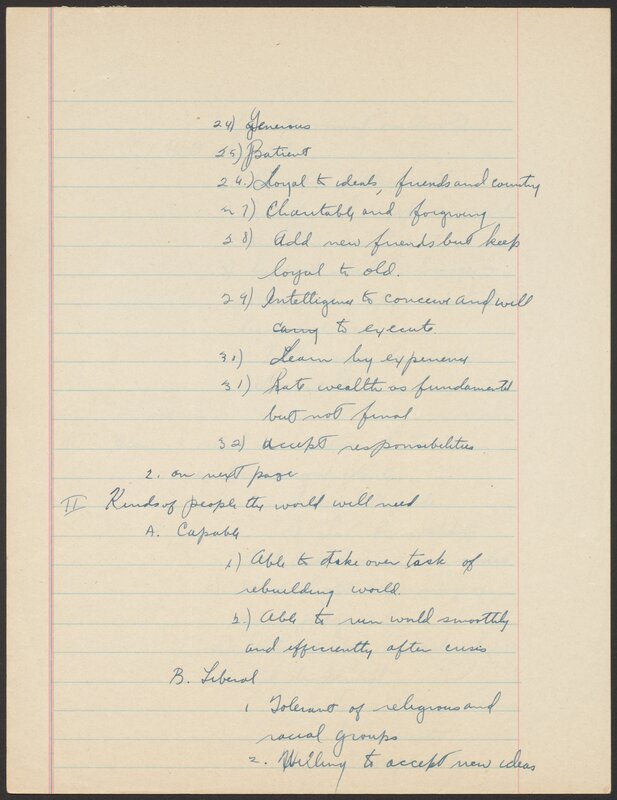 24) Generous
25) Patient
26.) Loyal to ideals, friends and country
27) Charitable and forgiving
28) Add new friends but keep
loyal to old.
29) Intelligence to conceive and will
carry to execute.
30) Learn by experience
31) Rate wealth as fundamental
but not final
32) accept responsibilities
2. on next page
II Kinds of people the world will need
A. Capable
1) Able to take over task of
rebuilding world.
2.) Able to run world smoothly
and efficiently after crisis
B. Liberal
1 Tolerant of religious and
racial groups
2. Willing to accept new ideas